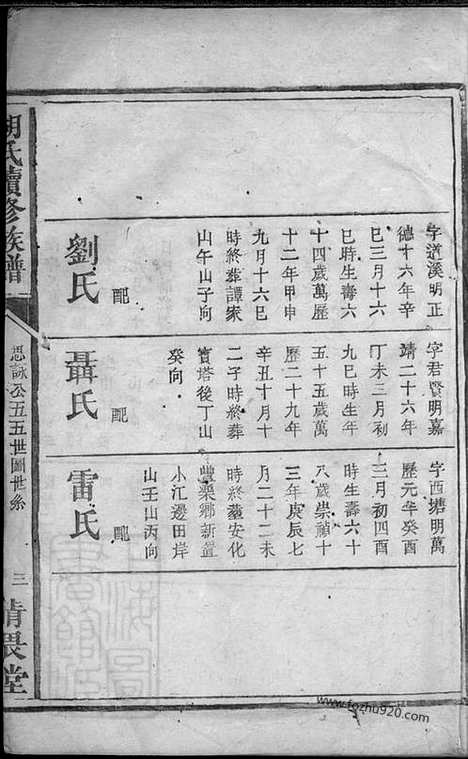 字道溪明正
德十六年辛
巳三月十六
巳時生壽六
十四歲萬歷
十二年甲申
九月十六巳
時終葬譚家
山午山子向
配
劉氏
字君賢明嘉
靖二十六年
丁未三月初
九巳時生年
五十五歲萬
歷二十九年
辛丑十月十
二子時終葬
寳塔後丁山
癸向
配
聶氏
字西塘明萬
歷元年癸酉
三月初四酉
時生壽六十
八歲崇禎十
三年庚辰七
月二十二未
時終葬安化
豐樂鄉新置
小江邊田岸
山壬山丙向
配
雷氏
胡氏續修族譜
思誠公五五世圖世系
三
清畏堂
www.fozhu920.com